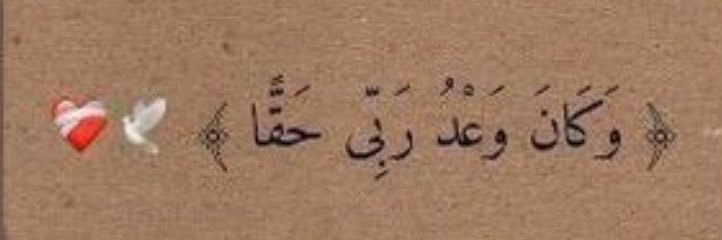 ﴿ وَكَانَ وَعْدُ رَبِّى حَقًّا ﴾ 🕊️❤️‍🩹